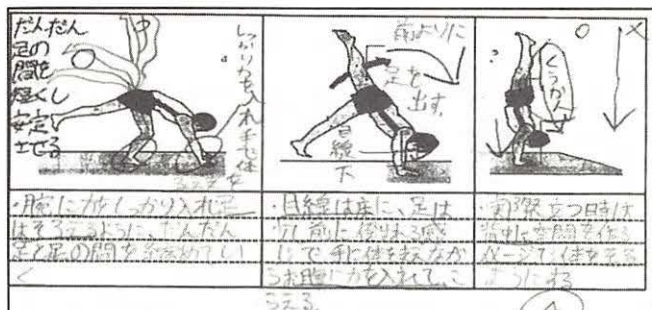 だんだん
足の
間を
短くし
安定
させる
しっかり力を入れ手で体を
支える
前よりに
足を出す。
目線
下
くうかん
・腕に力をしっかり入れ足
はそろえるように、だんだん
足と足の間を縮めてい
く
・目線は床に、足は
少し前に倒れる感
じで手に体を
お腹に力を入れて、こ
らえる
立つ時は
空間を作る
イメージで体を支える
ようにする